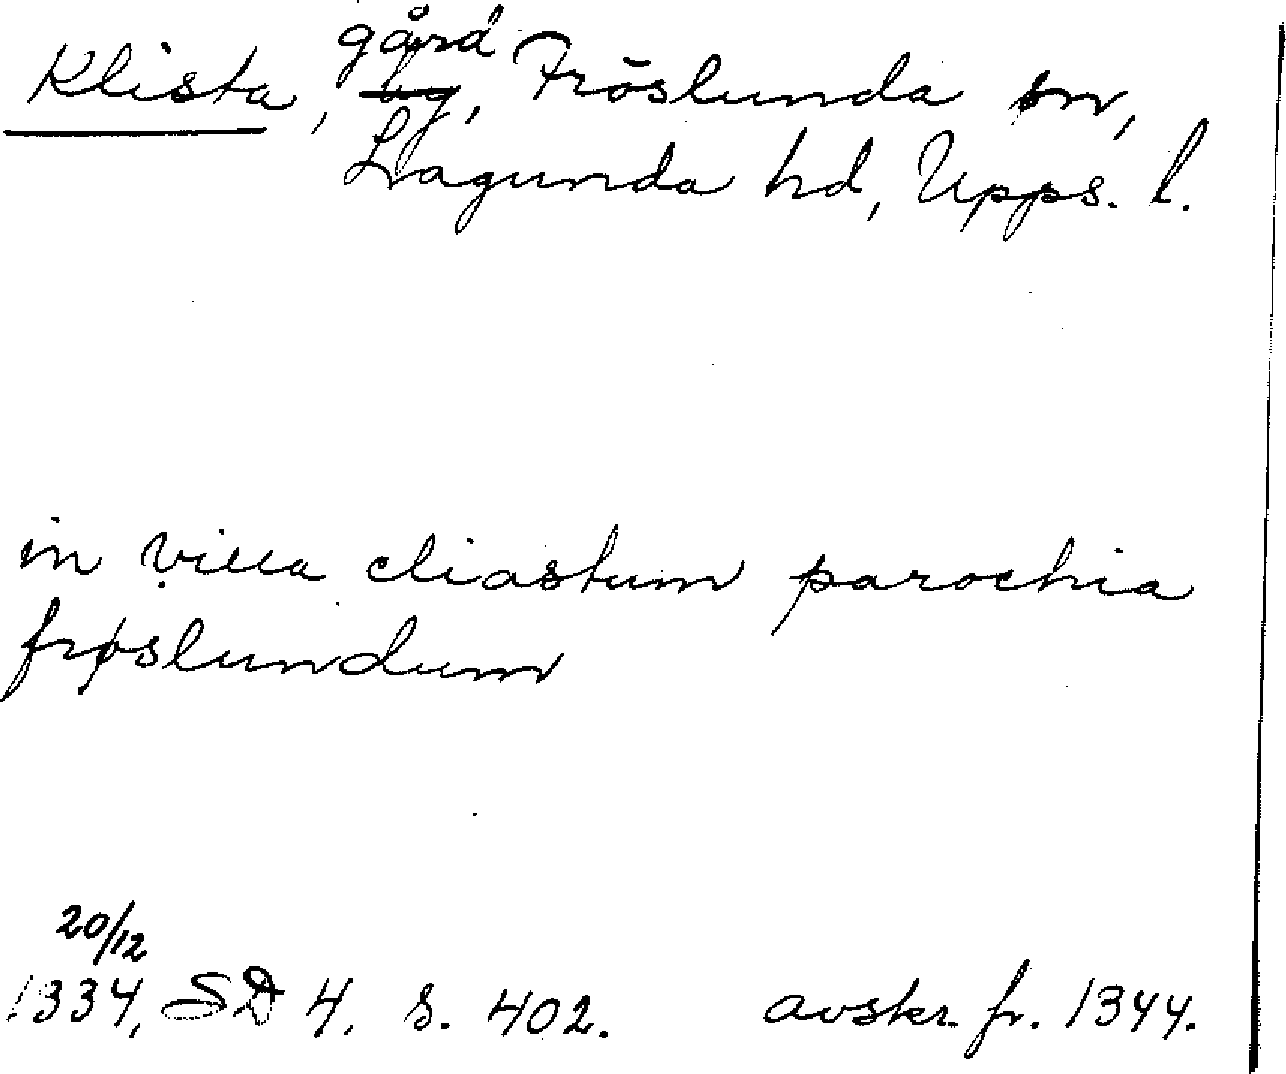 Klista, gård, Fröslunda sn,
Lagunda hd, Upps. l.
in villa cliastum parochia
frøslundum
20/12
1334, SD 4, s. 402. avskr. fr. 1344.